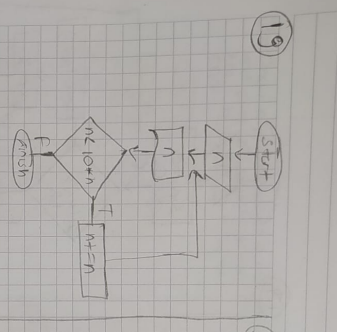 19
Start
n
n
n<10*n
T
n+=n
F
Finish